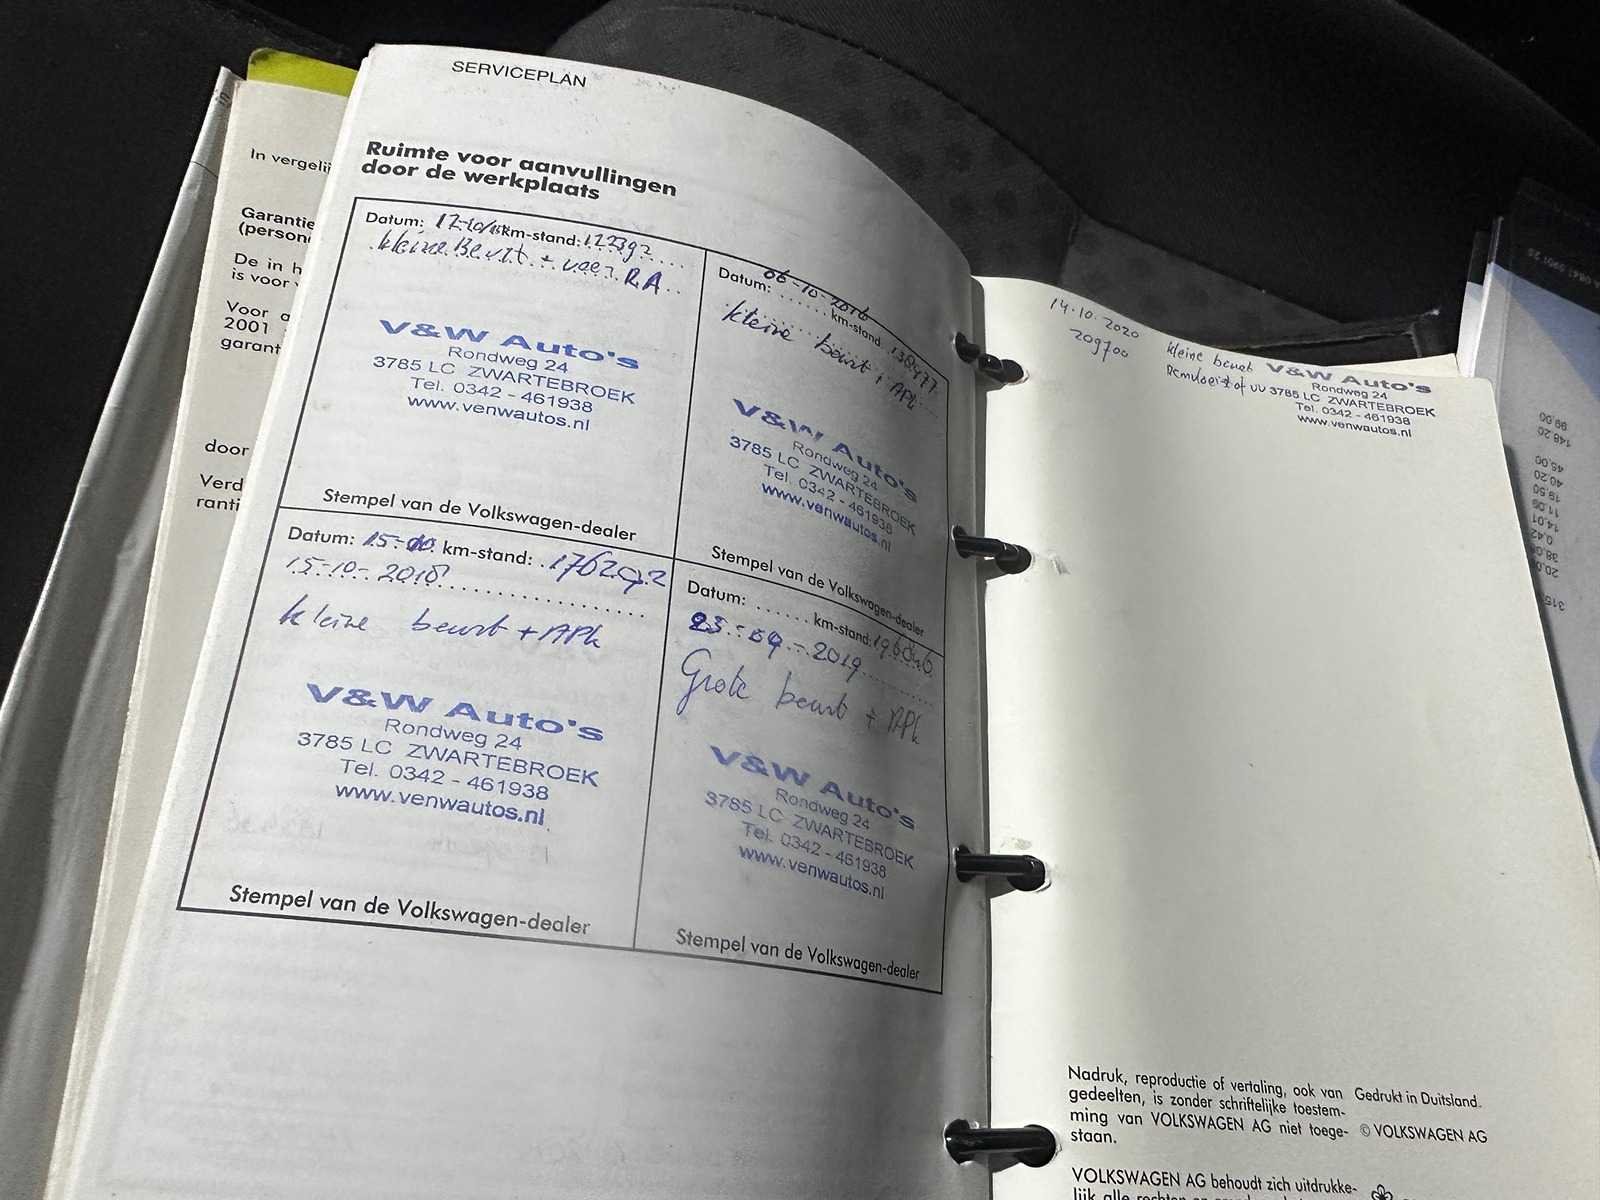 SERVICEPLAN
Ruimte voor aanvullingen
door de werkplaats
Datum: 17-10/ km-stand: 122392
kleine Beurt + veer RA
V&W Auto's
Rondweg 24
3785 LC ZWARTEBROEK
Tel. 0342 - 461938
www.venwautos.nl
Stempel van de Volkswagen-dealer
Datum: 06-10-2016
km-stand 138477
kleine beurt + APk
V&W Auto's
Rondweg 24
3785 LC ZWARTEBROEK
Tel. 0342 - 461938
www.venwautos.nl
Stempel van de Volkswagen-dealer
Datum: 15- km-stand: 176292
15-10-2018
kleine beurt + APk
V&W Auto's
Rondweg 24
3785 LC ZWARTEBROEK
Tel. 0342 - 461938
www.venwautos.nl
Stempel van de Volkswagen-dealer
Datum: km-stand: 196046
23-09-2019
Grote beurt + APk
V&W Auto's
Rondweg 24
3785 LC ZWARTEBROEK
Tel. 0342 - 461938
www.venwautos.nl
Stempel van de Volkswagen-dealer
In vergelij
Garantie
(person
De in h
is voor
Voor a
2001
garant
door
Verd
ranti
14.10.2020
209700
kleine beurt
Remvloeistof VV
V&W Auto's
Rondweg 24
3785 LC ZWARTEBROEK
Tel. 0342 - 461938
www.venwautos.nl
Nadruk, reproductie of vertaling, ook van
gedeelten, is zonder schriftelijke toestem-
ming van VOLKSWAGEN AG niet toege-
staan.
Gedrukt in Duitsland.
© VOLKSWAGEN AG
VOLKSWAGEN AG behoudt zich uitdrukke-
lijk alle rechten
99.00
148.20
45.00
40.20
19.50
11.09
14.01
0.42
38.0
20.0
315